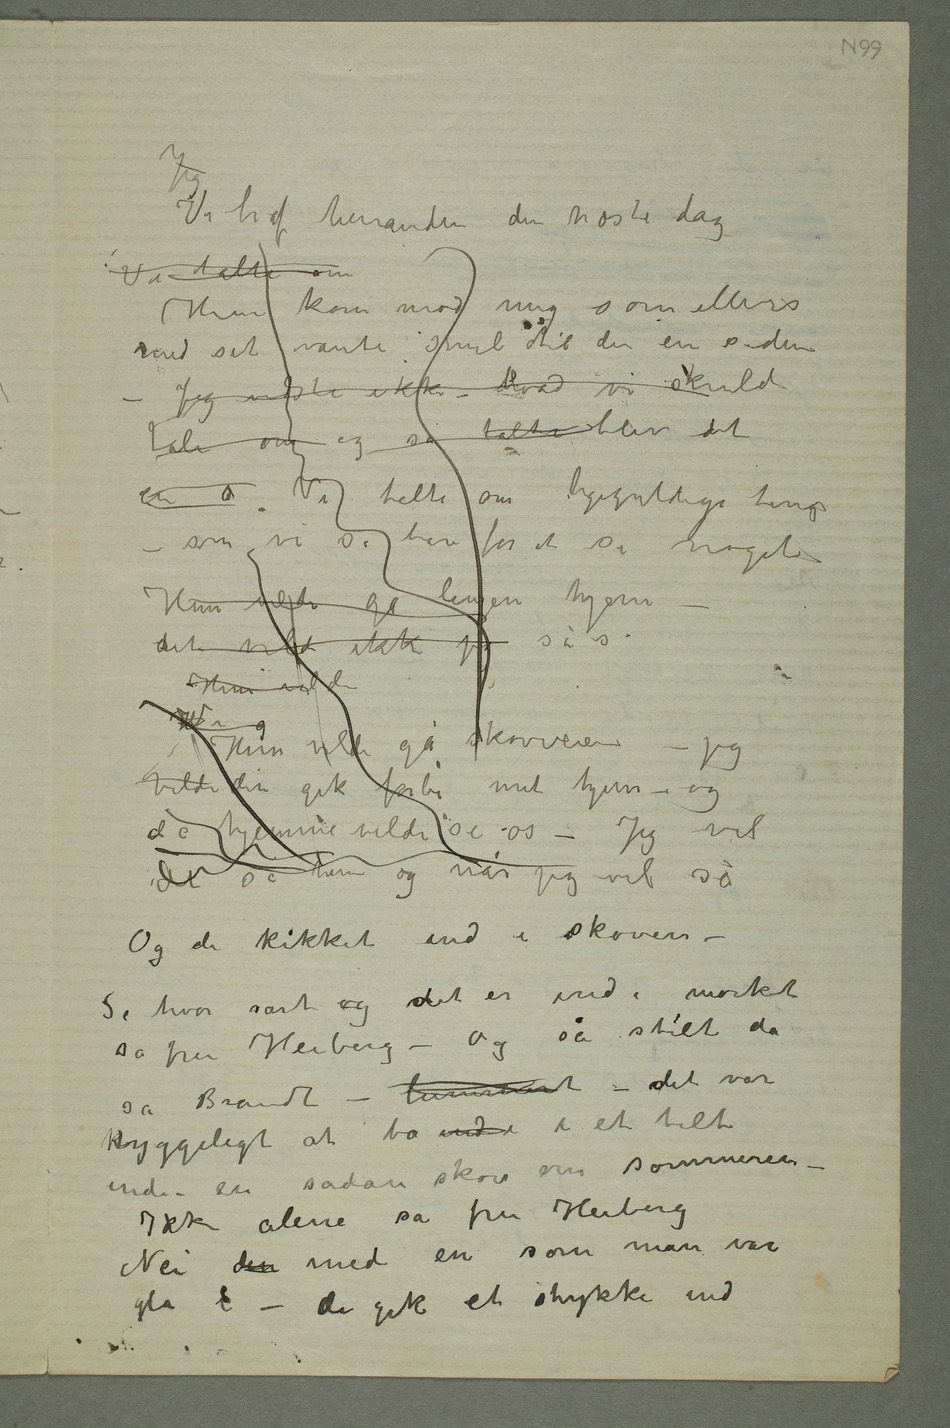 N99
Jeg
Vi traf hverandre den næste dag
Vi talte om
Hun kom mod mig som ellers
med sit vante smil til den en siden
– Jeg vidste ikke – hvad vi skulde
tale om og så talte blev det
en o. Vi talte om ligegyldige ting
– som vi sa bare for at si noget
Hun vilde gå lengen hjem –
det vilde ikke jeg så s
Hun vilde
Vi g
Hun vilde gå skovveien – jeg
vilde den gik forbi mit hjem – og
de hjemme vilde se os – Jeg vil
det sa hun og når jeg vil så
Og de kikket ind i skoven –
Se hvor sort og det er ind i mørket
sa fru Heiberg – Og så stilt da
sa Brandt – – det var
hyggeligt at bo ind i i et telt
inde i en sådan skov om sommeren –
Ikke alene sa fru Heiberg
Nei den med en som man var
gla i – de gik et stykke ind